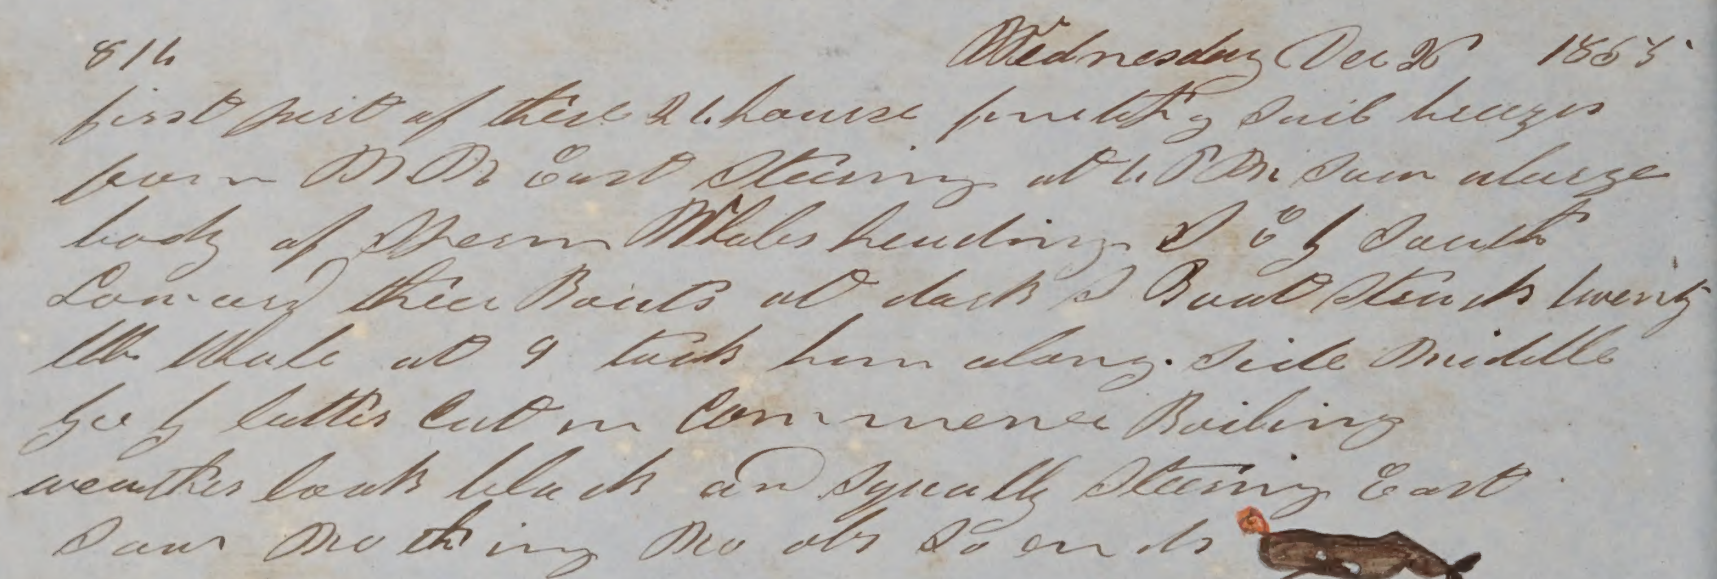 814 Wednesday Dec 20 1865
first part of these 24 hourse pretty fair breezes
from N N East Steering at 4 P M saw a large
body of Sperm Whales heading S E by South
Lowered thier Boats at dark S Boat Struck twenty
bbl Whale at 9 took him along side Middle
go by latter Cut in Commence Boiling
weather look black and squally Steering East
Saw Nothing No obs So ends